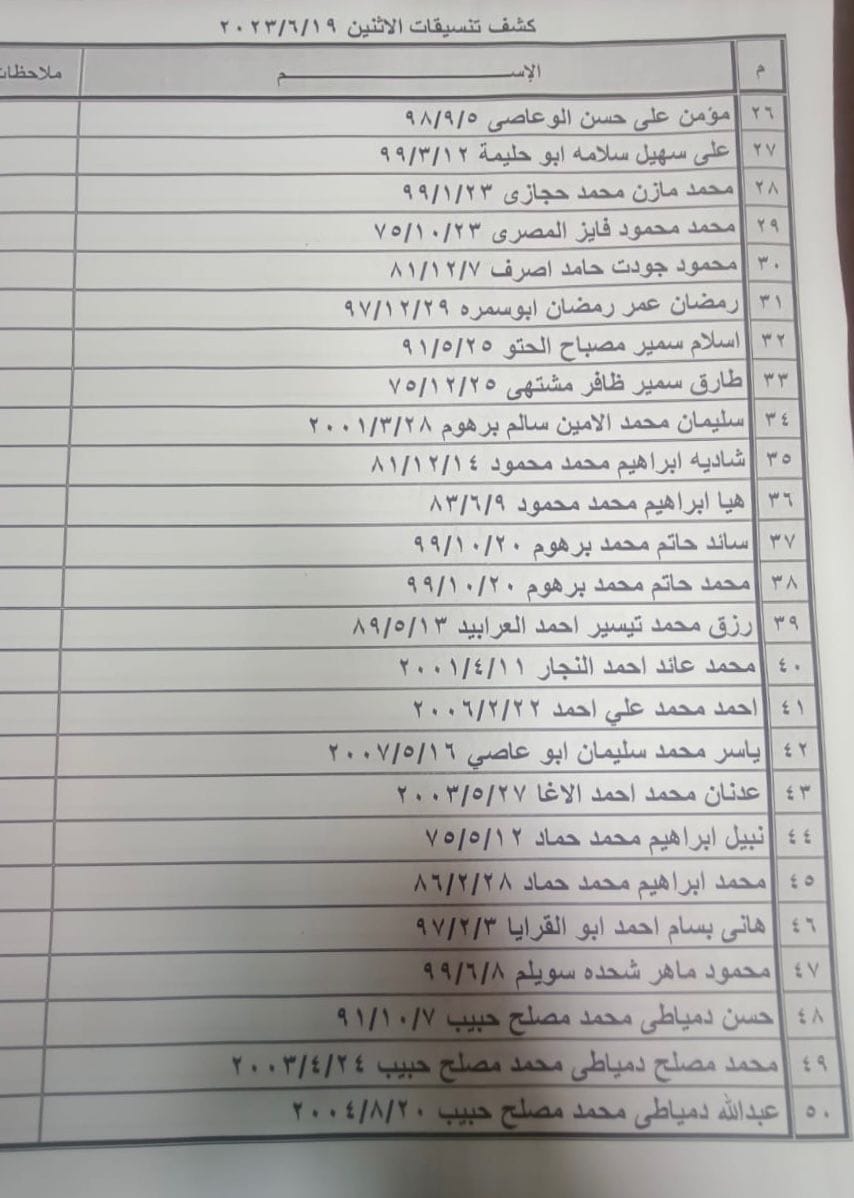 كشف تنسيقات الاثنين ٢٠٢٣/٦/١٩
م الإســـــــــم ملاحظات
٢٦ مؤمن على حسن الوعاصى ٩٨/٩/٥
٢٧ على سهيل سلامه ابو حليمة ٩٩/٣/١٢
٢٨ محمد مازن محمد حجازى ٩٩/١/٢٣
٢٩ محمد محمود فايز المصرى ٧٥/١٠/٢٣
٣٠ محمود جودت حامد اصرف ٨١/١٢/٧
٣١ رمضان عمر رمضان ابوسمره ٩٧/١٢/٢٩
٣٢ اسلام سمير مصباح الحتو ٩١/٥/٢٥
٣٣ طارق سمير ظافر مشتهى ٧٥/١٢/٢٥
٣٤ سليمان محمد الامين سالم برهوم ٢٠٠١/٣/٢٨
٣٥ شاديه ابراهيم محمد محمود ٨١/١٢/١٤
٣٦ هيا ابراهيم محمد محمود ٨٣/٦/٩
٣٧ سائد حاتم محمد برهوم ٩٩/١٠/٢٠
٣٨ محمد حاتم محمد برهوم ٩٩/١٠/٢٠
٣٩ رزق محمد تيسير احمد العرابيد ٨٩/٥/١٣
٤٠ محمد عائد احمد النجار ٢٠٠١/٤/١١
٤١ احمد محمد علي احمد ٢٠٠٦/٢/٢٢
٤٢ ياسر محمد سليمان ابو عاصي ٢٠٠٧/٥/١٦
٤٣ عدنان محمد احمد الاغا ٢٠٠٣/٥/٢٧
٤٤ نبيل ابراهيم محمد حماد ٧٥/٥/١٢
٤٥ محمد ابراهيم محمد حماد ٨٦/٢/٢٨
٤٦ هانى بسام احمد ابو القرايا ٩٧/٢/٣
٤٧ محمود ماهر شحده سويلم ٩٩/٦/٨
٤٨ حسن دمياطى محمد مصلح حبيب ٩١/١٠/٧
٤٩ محمد مصلح دمياطى محمد مصلح حبيب ٢٠٠٣/٤/٢٤
٥٠ عبدالله دمياطى محمد مصلح حبيب ٢٠٠٤/٨/٢٠